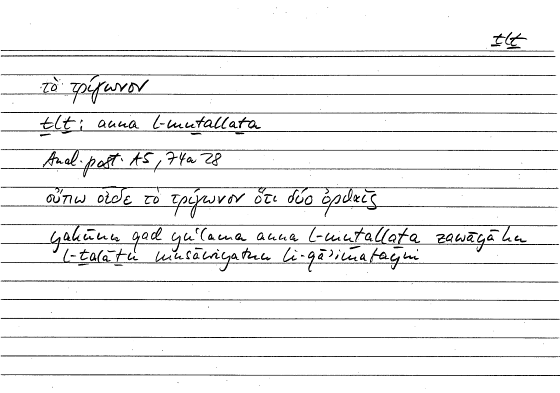 ṯlṯ
τὸ τρίγωνον
ṯlṯ: anna l-muṯallaṯa
Anal. post. A5, 74a28
οὔπω οἶδε τὸ τρίγωνον ὅτι δύο ὀρθαῖς
yakūnu qad yuʿlama anna l-muṯallaṯa zawāyāhu
l-ṯalāṯu musāwiyatun li-qāʾimatayni